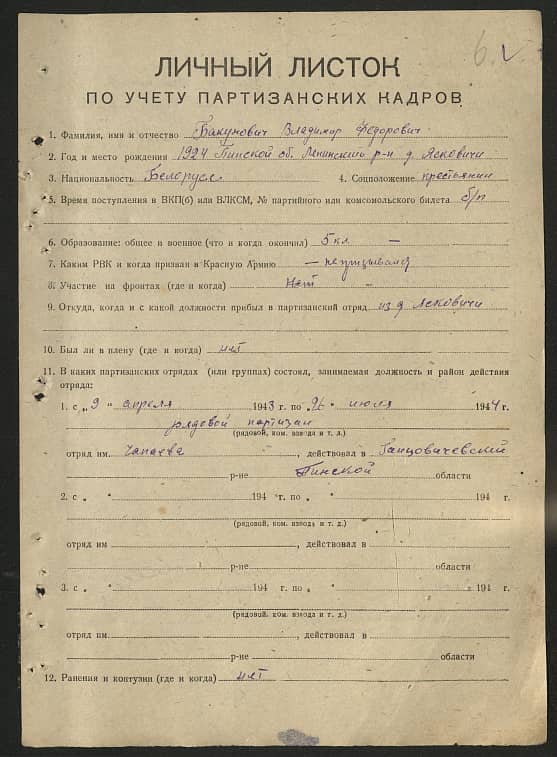 6.
ЛИЧНЫЙ ЛИСТОК
ПО УЧЕТУ ПАРТИЗАНСКИХ КАДРОВ
1. Фамилия, имя и отчество Бакунович Владимир Федорович
2. Год и место рождения 1924 Пинской об. Ленинский р-н д. Ясковичи
3. Национальность Белорусс 4. Соцположение крестьянин
5. Время поступления в ВКП(б) или ВЛКСМ, № партийного или комсомольского билета б/п
6. Образование: общее и военное (что и когда окончил) 5 кл. —
7. Каким РВК и когда призван в Красную Армию — не призывался
8. Участие на фронтах (где и когда) Нет
9. Откуда, когда и с какой должности прибыл в партизанский отряд из д Ясковичи
10. Был ли в плену (где и когда) нет
11. В каких партизанских отрядах (или группах) состоял, занимаемая должность и район действия
отряда:
1. с „9 " апреля 1943 г. по " июля 1944 г.
рядовой партизан
(рядовой, ком. взвода и т. д.)
отряд им. Чапаева, действовал в Ганцовичевский
р-не Пинской области
2. с " " 194 г. по " " 194 г.
(рядовой, ком. взвода и т. д.)
отряд им , действовал в
р-не области
3. с " " 194 г. по " " 194 г.
(рядовой, ком. взвода и т. д.)
отряд им. , действовал в
р-не области
12. Ранения и контузии (где и когда) нет